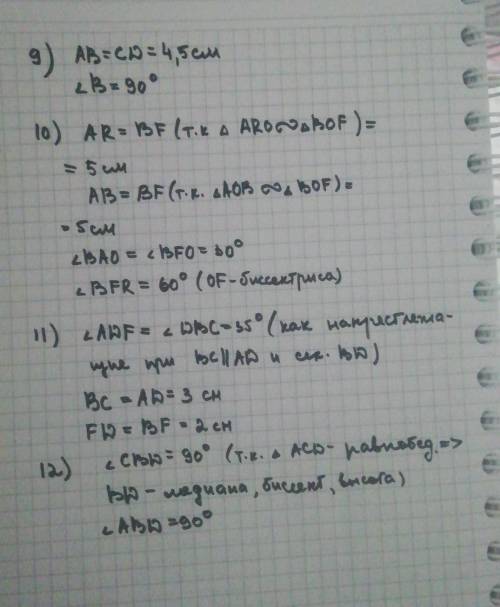 9) AB = CD = 4,5 см
∠B = 90°
10) AR = BF (т.к △ ARO ∾ △ BOF) =
= 5 см
AB = BF (т.к. △AOB ∾ △ BOF) =
= 5 см
∠BAO = ∠BFO = 30°
∠BFR = 60° (OF - биссектриса)
11) ∠ADF = ∠DBC = 35° (как накрестлежа-
щие при BC || AD и сек. BD)
BC = AD = 3 см
FD = BF = 2 см
12) ∠CBD = 90° (т.к. △ ACD - равнобед. =>
BD - медиана, биссект, высота)
∠ABD = 90°